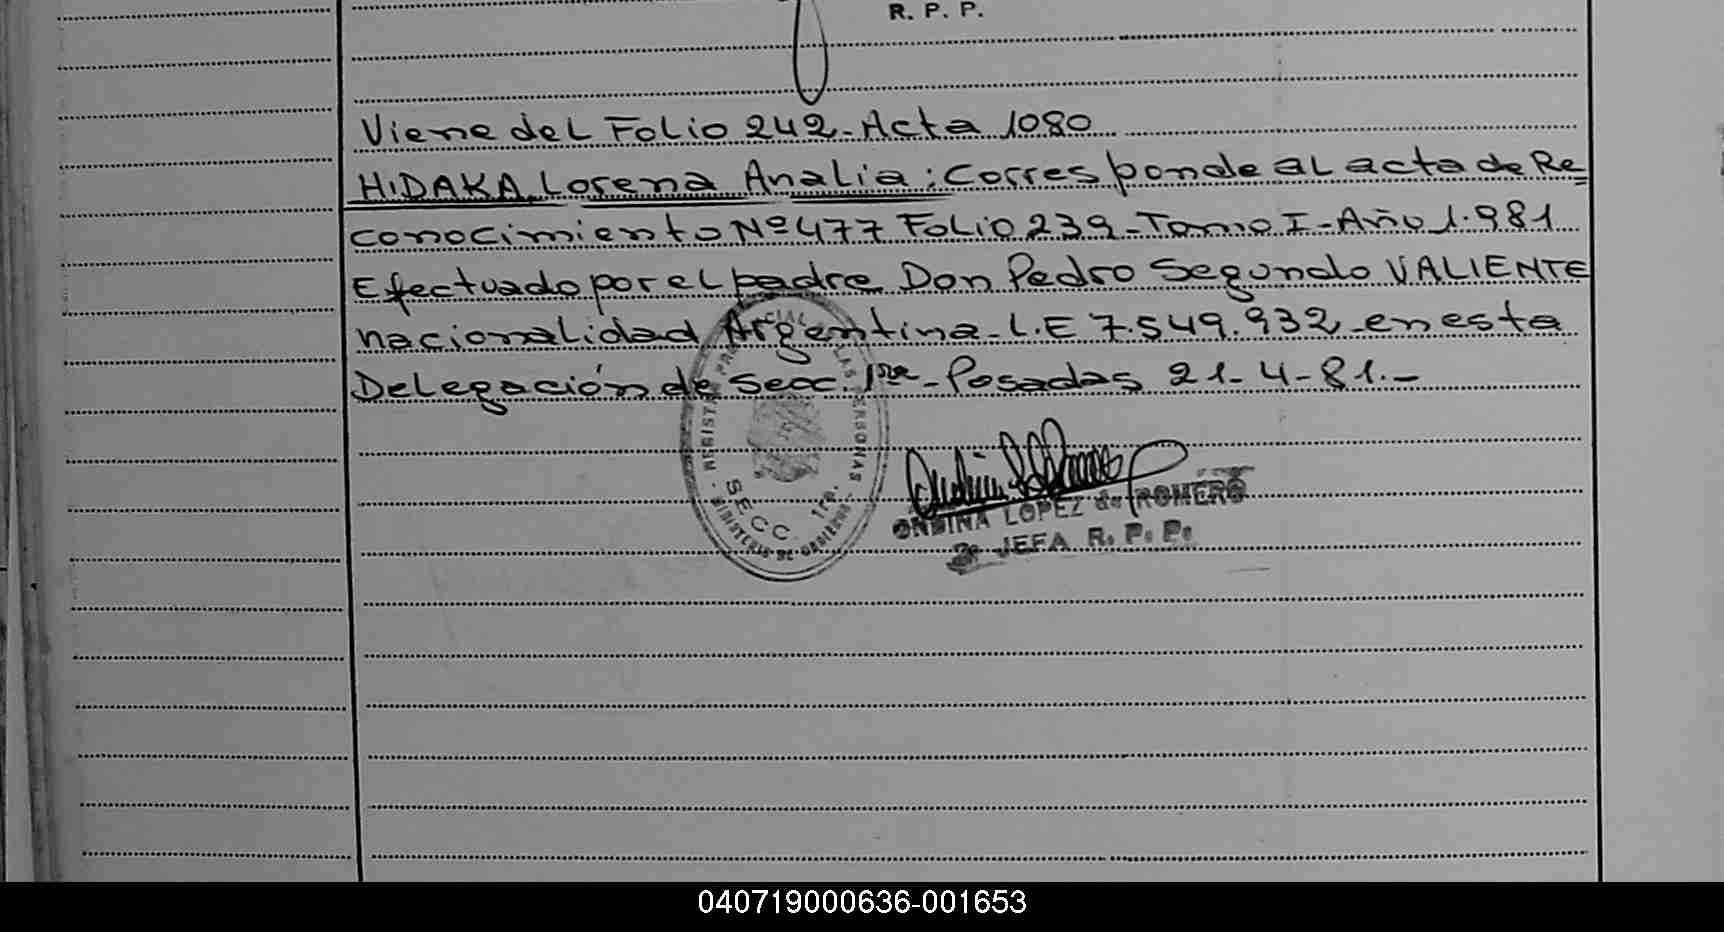 R. P. P.
Viene del Folio 242-Acta 1080
HIDAKA, Lorena Analia: Corresponde al acta de Re=
conocimiento Nº 477 Folio 239-Tomo I-Año 1.981
Efectuado por el padre Don Pedro Segundo VALIENTE
nacionalidad Argentina-L.E 7.549.932-en esta
Delegación de Secc. 1ra-Posadas 21-4-81.-
SECC. 1ra.
MINISTERIO DE GOBIERNO
ONDINA LOPEZ de ROMERO
JEFA R. P. P.
040719000636-001653